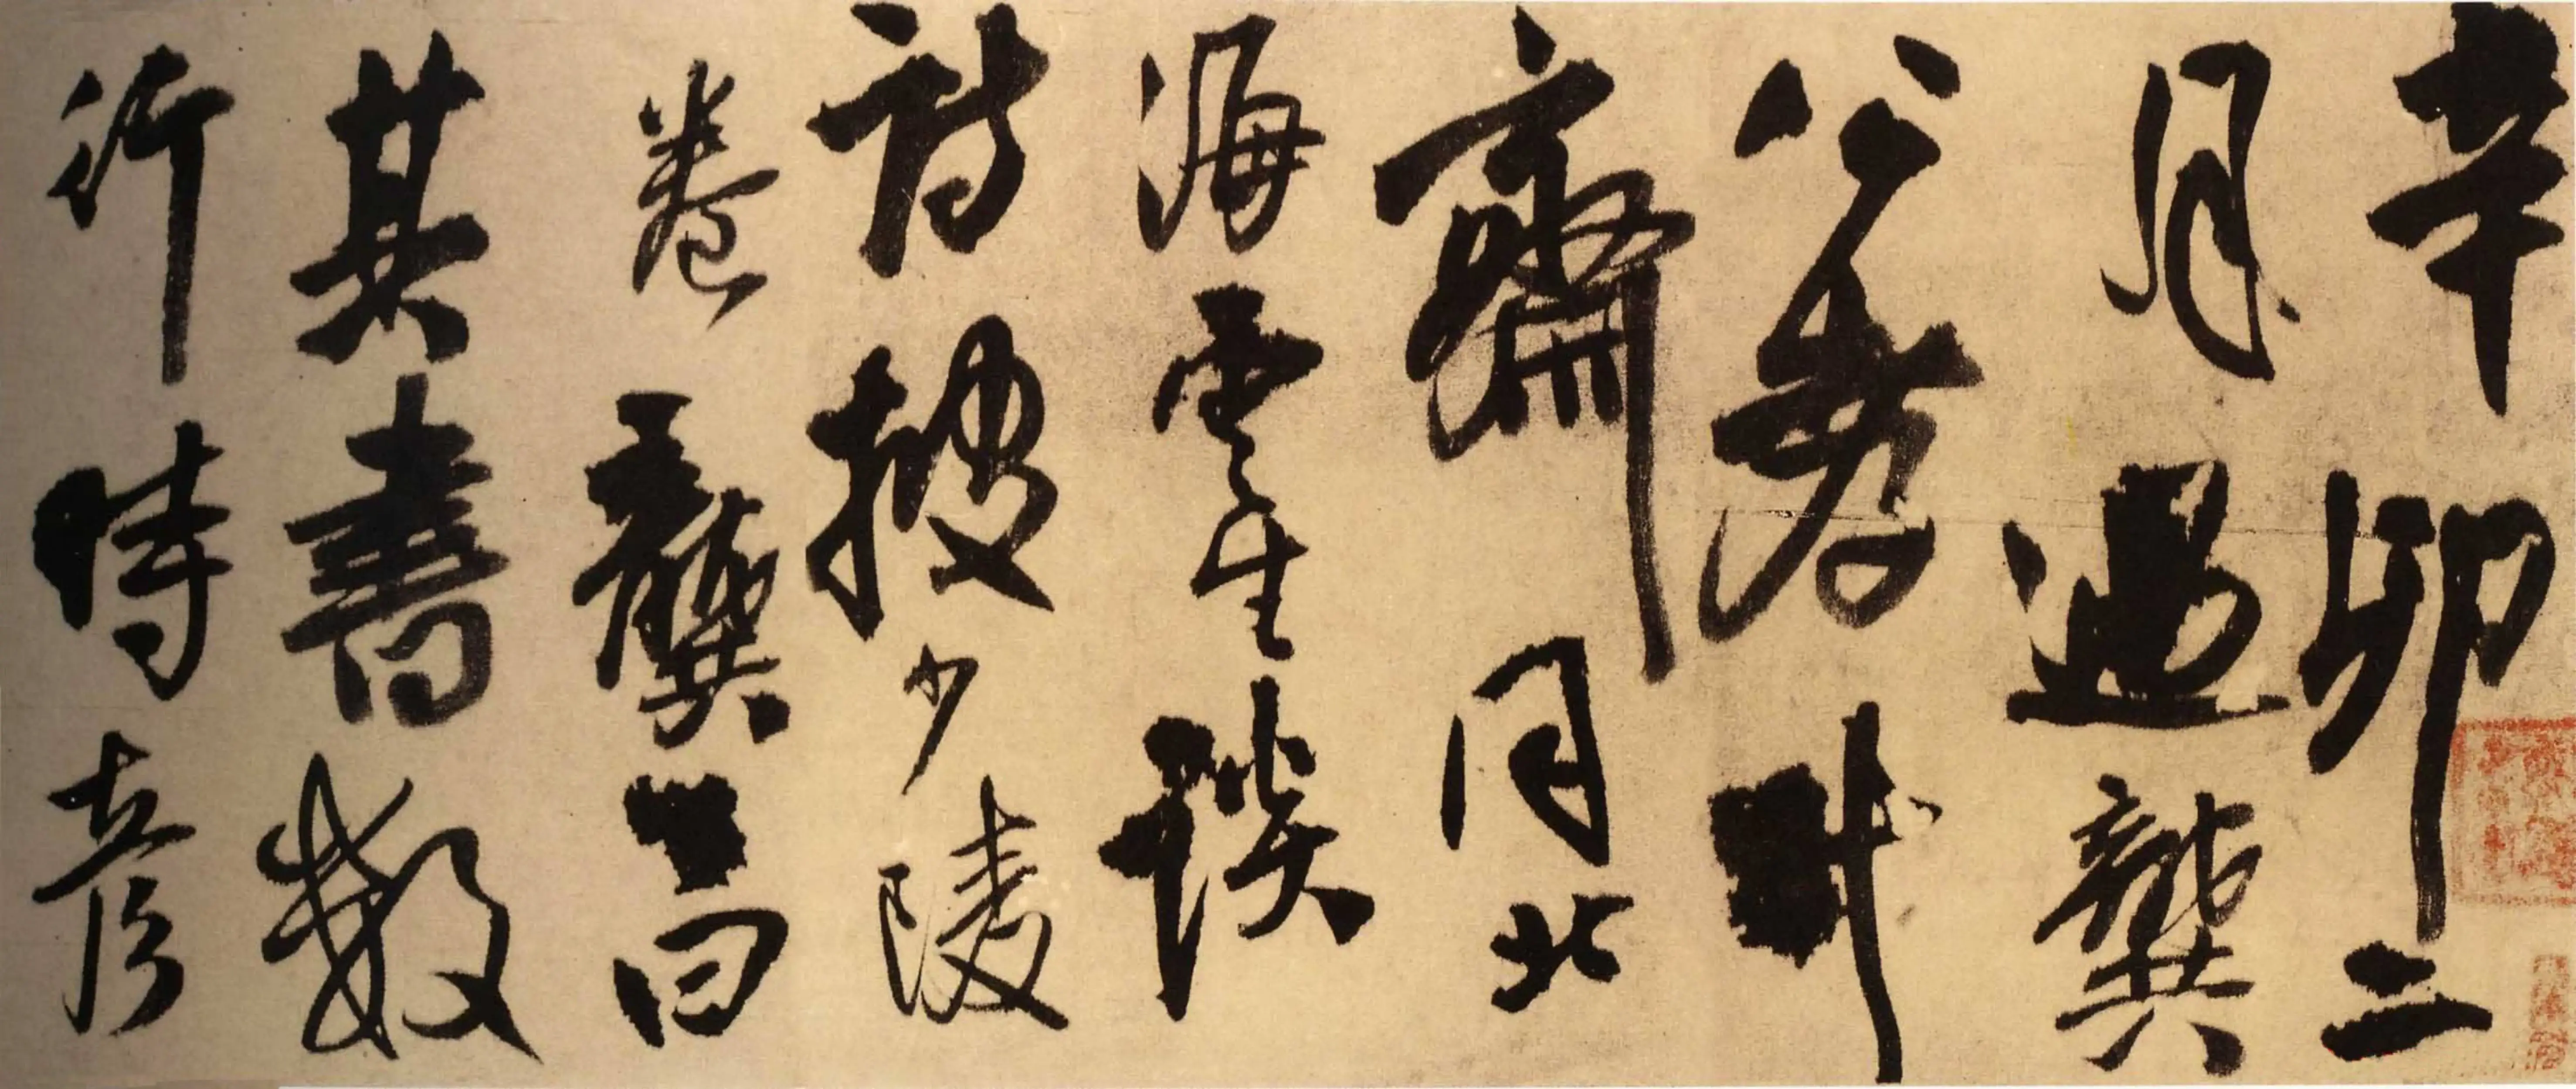 辛卯二
月過龔
公孝升
齋同北
海雲生談
詩披少陵
卷龔曰
其書數
行時彥